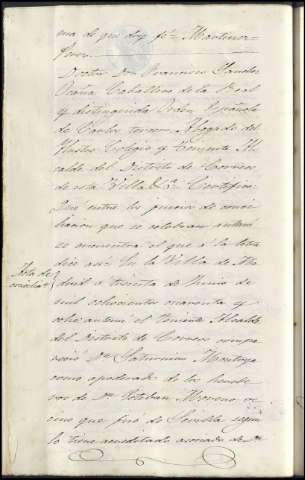 ma de que doy fe = Martinez
Perez
Doctor Don Francisco Sanchez
Ocaña Caballero de la Real
y distinguida Orden Española
de Carlos tercero, Abogado del
Ilustre Colegio y Teniente Al
calde del Distrito de Correos
de esta Villa &ª Certifico:
Que entre los juicios de conci
liacion que se celebran
se encuentra el que a la letra
dice asi: En la Villa de Ma
drid a treinta de Junio de
mil ochocientos cincuenta y
ocho: ante el Teniente Alcalde
del Distrito de Correos compa
reció Dn Saturnino Montoya
como apoderado de los herede
ros de Dn Esteban Moreno, ve
cino que fué de Sevilla segun
lo tiene acreditado asociado de Dn
Acta de
conciliacn